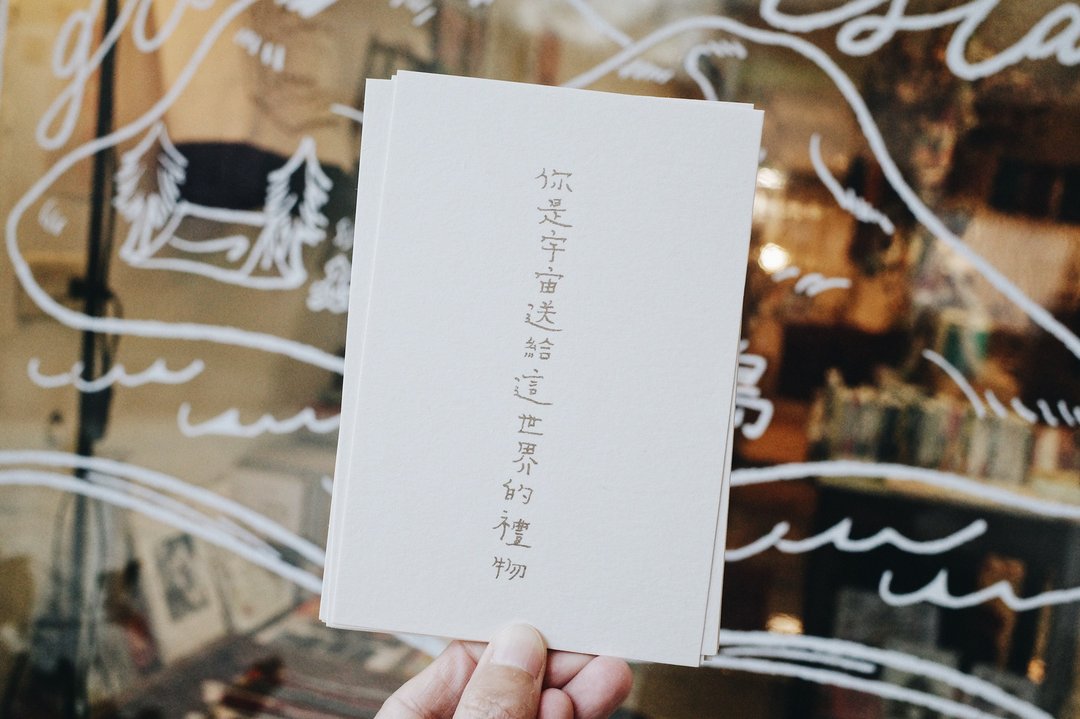 你是宇宙送給這世界的禮物
島